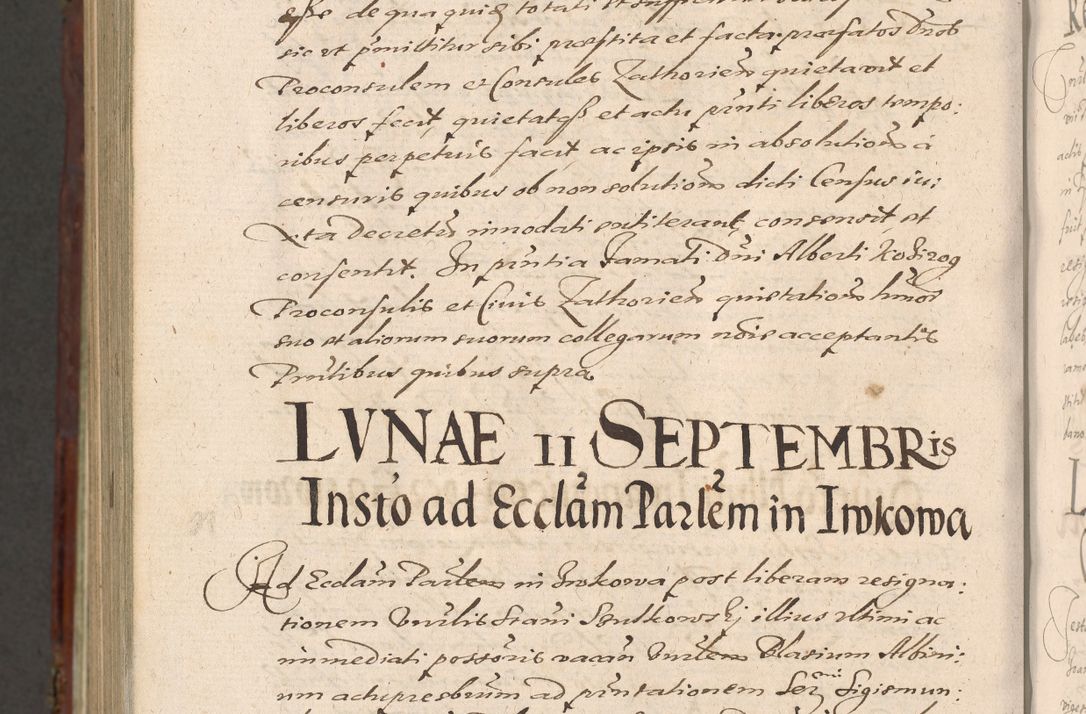 esse de qua quid totali et
sic ut pmittitur sibi præstita et facta præfatos Dnos
Proconsulem et Consules Zathorien quietavit et
liberos fecit, quietatosq et actu pnti liberos tempo:
ribus perpetuis facit ac ipsis in absolutiom a
censuris quibus ob non solutiom dicti Census iu:
xta Decretu innodati extiterant, consensit et
consentit. In pntia famati Dni Alberti Kozirog
Proconsulis et Civis Zathorien quietationo hmoi
suo et aliorum suorum collegarum nôie acceptantis
Pntibus quibus supra
LVNAE 11 SEPTEMBRis
Insto ad Ecclam Parlem in Iwkowa
Ad Ecclam Parlem in Iwkowa post liberam resigna:
tionem Vnrlis Stani Szulkowskj illius ultimi ac
immediati possoris vacan Vnrlem Blasium Albini:
um actu presbrum ad pntationem Ser Sigismun: